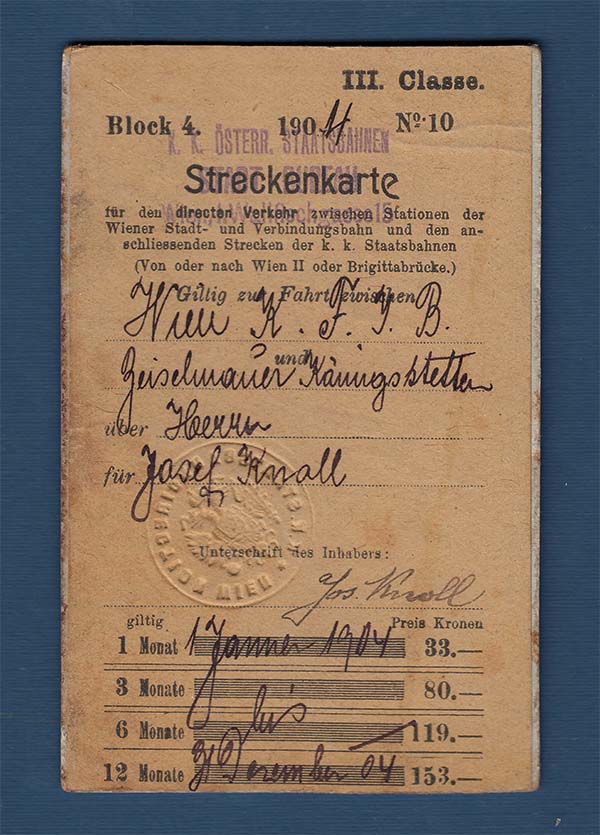 III. Classe.
Block 4. 1904 No. 10
K. K. ÖSTERR. STAATSBAHNEN
Streckenkarte
für den directen Verkehr zwischen Stationen der
Wiener Stadt- und Verbindungsbahn und den an-
schliessenden Strecken der k. k. Staatsbahnen
(Von oder nach Wien II oder Brigittabrücke.)
Giltig zur Fahrt zwischen
Wien K. F. J. B.
und
Zeiselmauer Königsstetten
über Herrn
für Josef Knoll
WIEN
Unterschrift des Inhabers:
Jos. Knoll
giltig Preis Kronen
1 Monat 1 Jänner 1904 33.—
3 Monate 80.—
6 Monate bis 119.—
12 Monate 31 Dezember 04 153.—